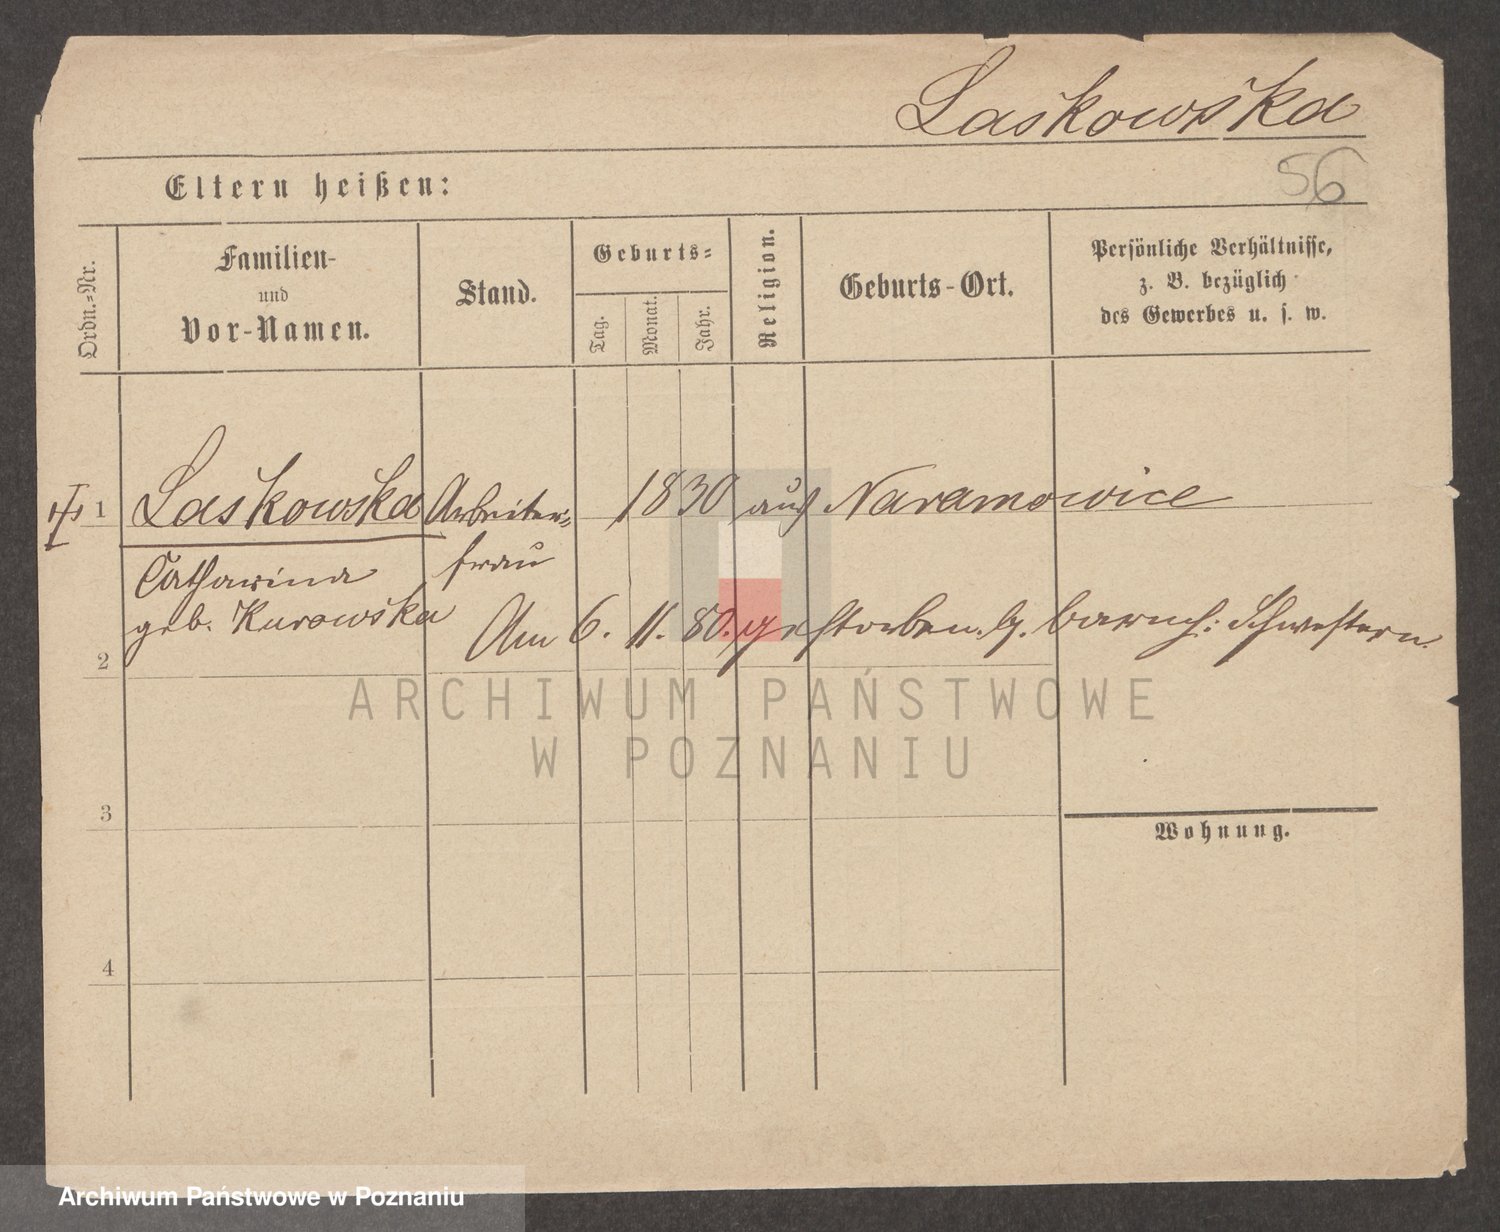 Laskowska
Eltern heißen:
56
Ordn.=Nr.
Familien-
und
Vor-Namen.
Stand.
Geburts=
Tag.
Monat.
Jahr.
Religion.
Geburts-Ort.
Persönliche Verhältnisse,
z. B. bezüglich
des Gewerbes u. s. w.
1 Laskowska Arbeiter= 1830 aus Naramowice
frau
Catharina
geb. Kurowska
Am 6. 11. 80. gestorben. b. barmh: Schwestern.
2
ARCHIWUM PAŃSTWOWE
W POZNANIU
3
Wohnung.
4
Archiwum Państwowe w Poznaniu